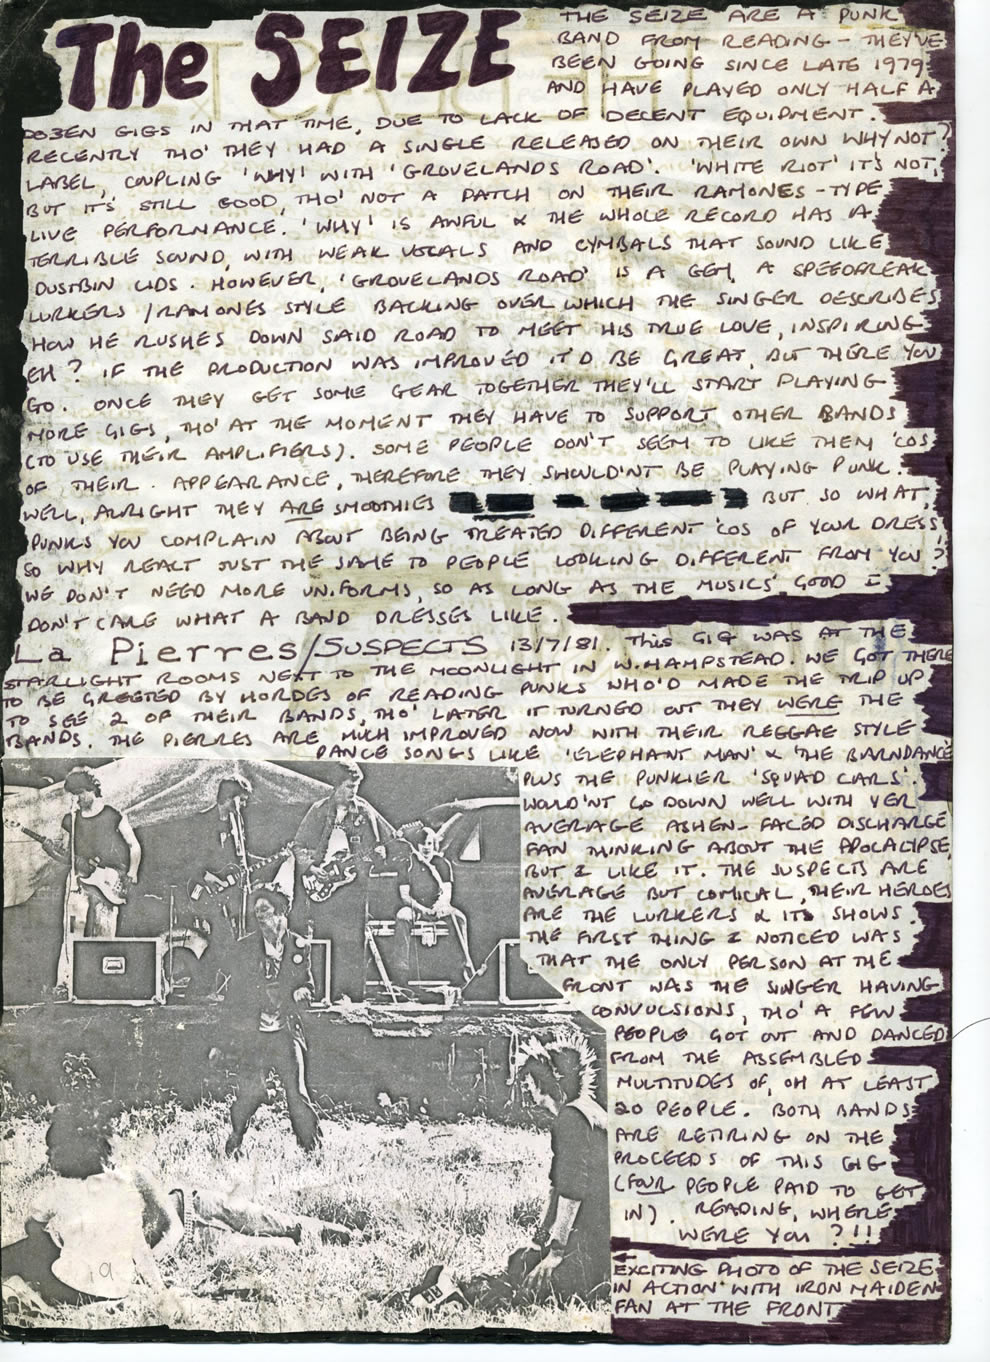 The SEIZE
THE SEIZE ARE A PUNK
BAND FROM READING - THEY'VE
BEEN GOING SINCE LATE 1979
AND HAVE PLAYED ONLY HALF A
DOZEN GIGS IN THAT TIME, DUE TO LACK OF DECENT EQUIPMENT.
RECENTLY THO' THEY HAD A SINGLE RELEASED ON THEIR OWN WHY NOT?
LABEL, COUPLING 'WHY' WITH 'GROVELANDS ROAD'. 'WHITE RIOT' IT'S NOT,
BUT IT'S STILL GOOD, THO' NOT A PATCH ON THEIR RAMONES-TYPE
LIVE PERFORMANCE. 'WHY' IS AWFUL & THE WHOLE RECORD HAS A
TERRIBLE SOUND, WITH WEAK VOCALS AND CYMBALS THAT SOUND LIKE
DUSTBIN LIDS. HOWEVER, 'GROVELANDS ROAD' IS A GEM, A SPEEDFREAK
LURKERS/RAMONES STYLE BACKING OVER WHICH THE SINGER DESCRIBES
HOW HE RUSHES DOWN SAID ROAD TO MEET HIS TRUE LOVE, INSPIRING
EH? IF THE PRODUCTION WAS IMPROVED IT'D BE GREAT, BUT THERE YOU
GO. ONCE THEY GET SOME GEAR TOGETHER THEY'LL START PLAYING
MORE GIGS, THO' AT THE MOMENT THEY HAVE TO SUPPORT OTHER BANDS
(TO USE THEIR AMPLIFIERS). SOME PEOPLE DON'T SEEM TO LIKE THEM 'COS
OF THEIR. APPEARANCE, THEREFORE THEY SHOULD'NT BE PLAYING PUNK.
WELL, ALRIGHT THEY ARE SMOOTHIES BUT SO WHAT,
PUNKS YOU COMPLAIN ABOUT BEING TREATED DIFFERENT 'COS OF YOUR DRESS,
SO WHY REACT JUST THE SAME TO PEOPLE LOOKING DIFFERENT FROM YOU?
WE DON'T NEED MORE UNIFORMS, SO AS LONG AS THE MUSICS' GOOD I
DON'T CARE WHAT A BAND DRESSES LIKE.
La Pierres/SUSPECTS 13/7/81. This GIG WAS AT THE
STARLIGHT ROOMS NEXT TO THE MOONLIGHT IN W.HAMPSTEAD. WE GOT THERE
TO BE GREETED BY HORDES OF READING PUNKS WHO'D MADE THE TRIP UP
TO SEE 2 OF THEIR BANDS, THO' LATER IT TURNED OUT THEY WERE THE
BANDS. THE PIERRES ARE MUCH IMPROVED NOW WITH THEIR REGGAE STYLE
DANCE SONGS LIKE 'ELEPHANT MAN' & 'THE BARNDANCE
PLUS THE PUNKIER 'SQUAD CARS'.
WOULD'NT GO DOWN WELL WITH YER
AVERAGE ASHEN-FACED DISCHARGE
FAN THINKING ABOUT THE APOCALYPSE,
BUT I LIKE IT. THE SUSPECTS ARE
AVERAGE BUT COMICAL, THEIR HEROES
ARE THE LURKERS & IT SHOWS.
THE FIRST THING I NOTICED WAS
THAT THE ONLY PERSON AT THE
FRONT WAS THE SINGER HAVING
CONVULSIONS, THO' A FEW
PEOPLE GOT OUT AND DANCED
FROM THE ASSEMBLED
MULTITUDES OF, OH AT LEAST
20 PEOPLE. BOTH BANDS
ARE RETIRING ON THE
PROCEEDS OF THIS GIG
(FOUR PEOPLE PAID TO GET
IN). READING, WHERE
WERE YOU?!!
EXCITING PHOTO OF THE SEIZE
IN ACTION WITH IRON MAIDEN
FAN AT THE FRONT